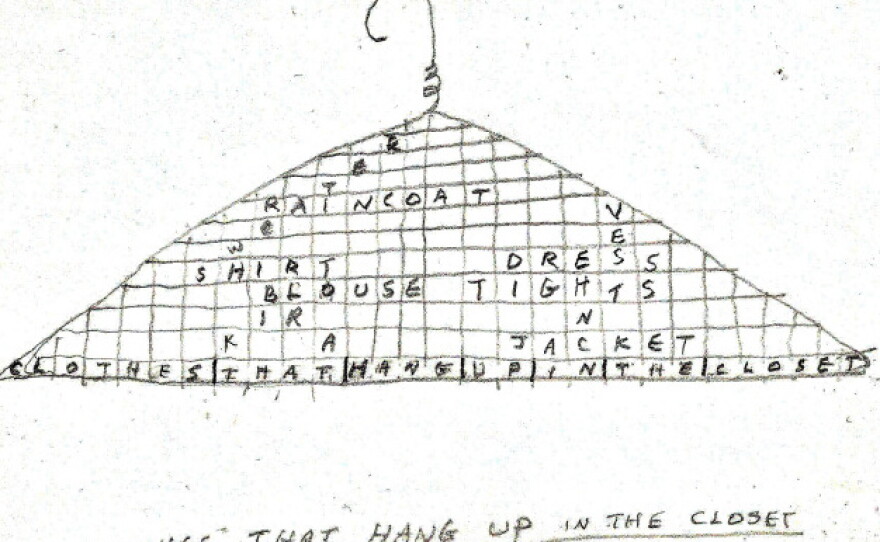 R
E
T
RAINCOAT V
E E
W
SHIRT DRESS S
BLOUSE TIGHTS
I R N
K A JACKET
CLOTHES THAT HANG UP IN THE CLOSET
THAT HANG UP IN THE CLOSET